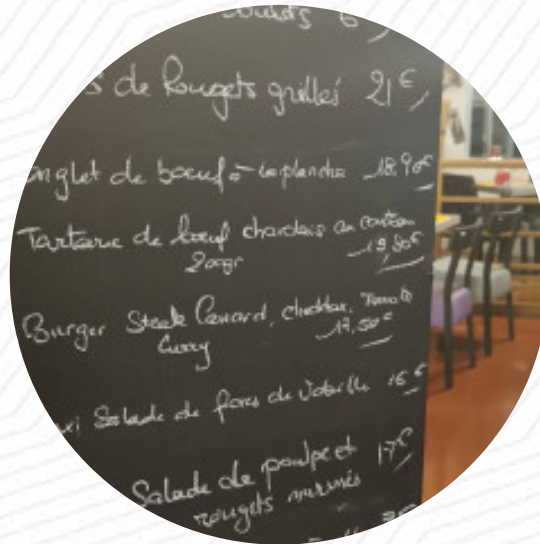 de Rougets grillés 21€
onglet de boeuf à la plancha 18.90€
Tartare de boeuf charolais au couteau
200gr 19,80€
Burger Steak Canard, cheddar, Tomate
Curry 17,50€
Salade de foies de Volaille 16€
Salade de poulpe et 17€
rougets marinés